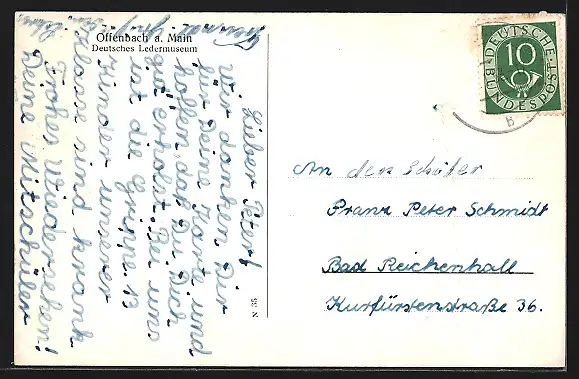 Offenbach a. Main
Deutsches Ledermuseum
Lieber Peter!
Wir danken Dir
für Deine Karte und
hoffen, das Du Dich
gut erholst. Bei uns
ist die Grippe. 13
Kinder unserer
Klasse sind krank.
Frohes Wiedersehen!
Deine Mitschüler
N 35
DEUTSCHE
BUNDESPOST
10
b
An den Schüler
Franz Peter Schmidt
Bad Reichenhall
Kurfürstenstraße 36.